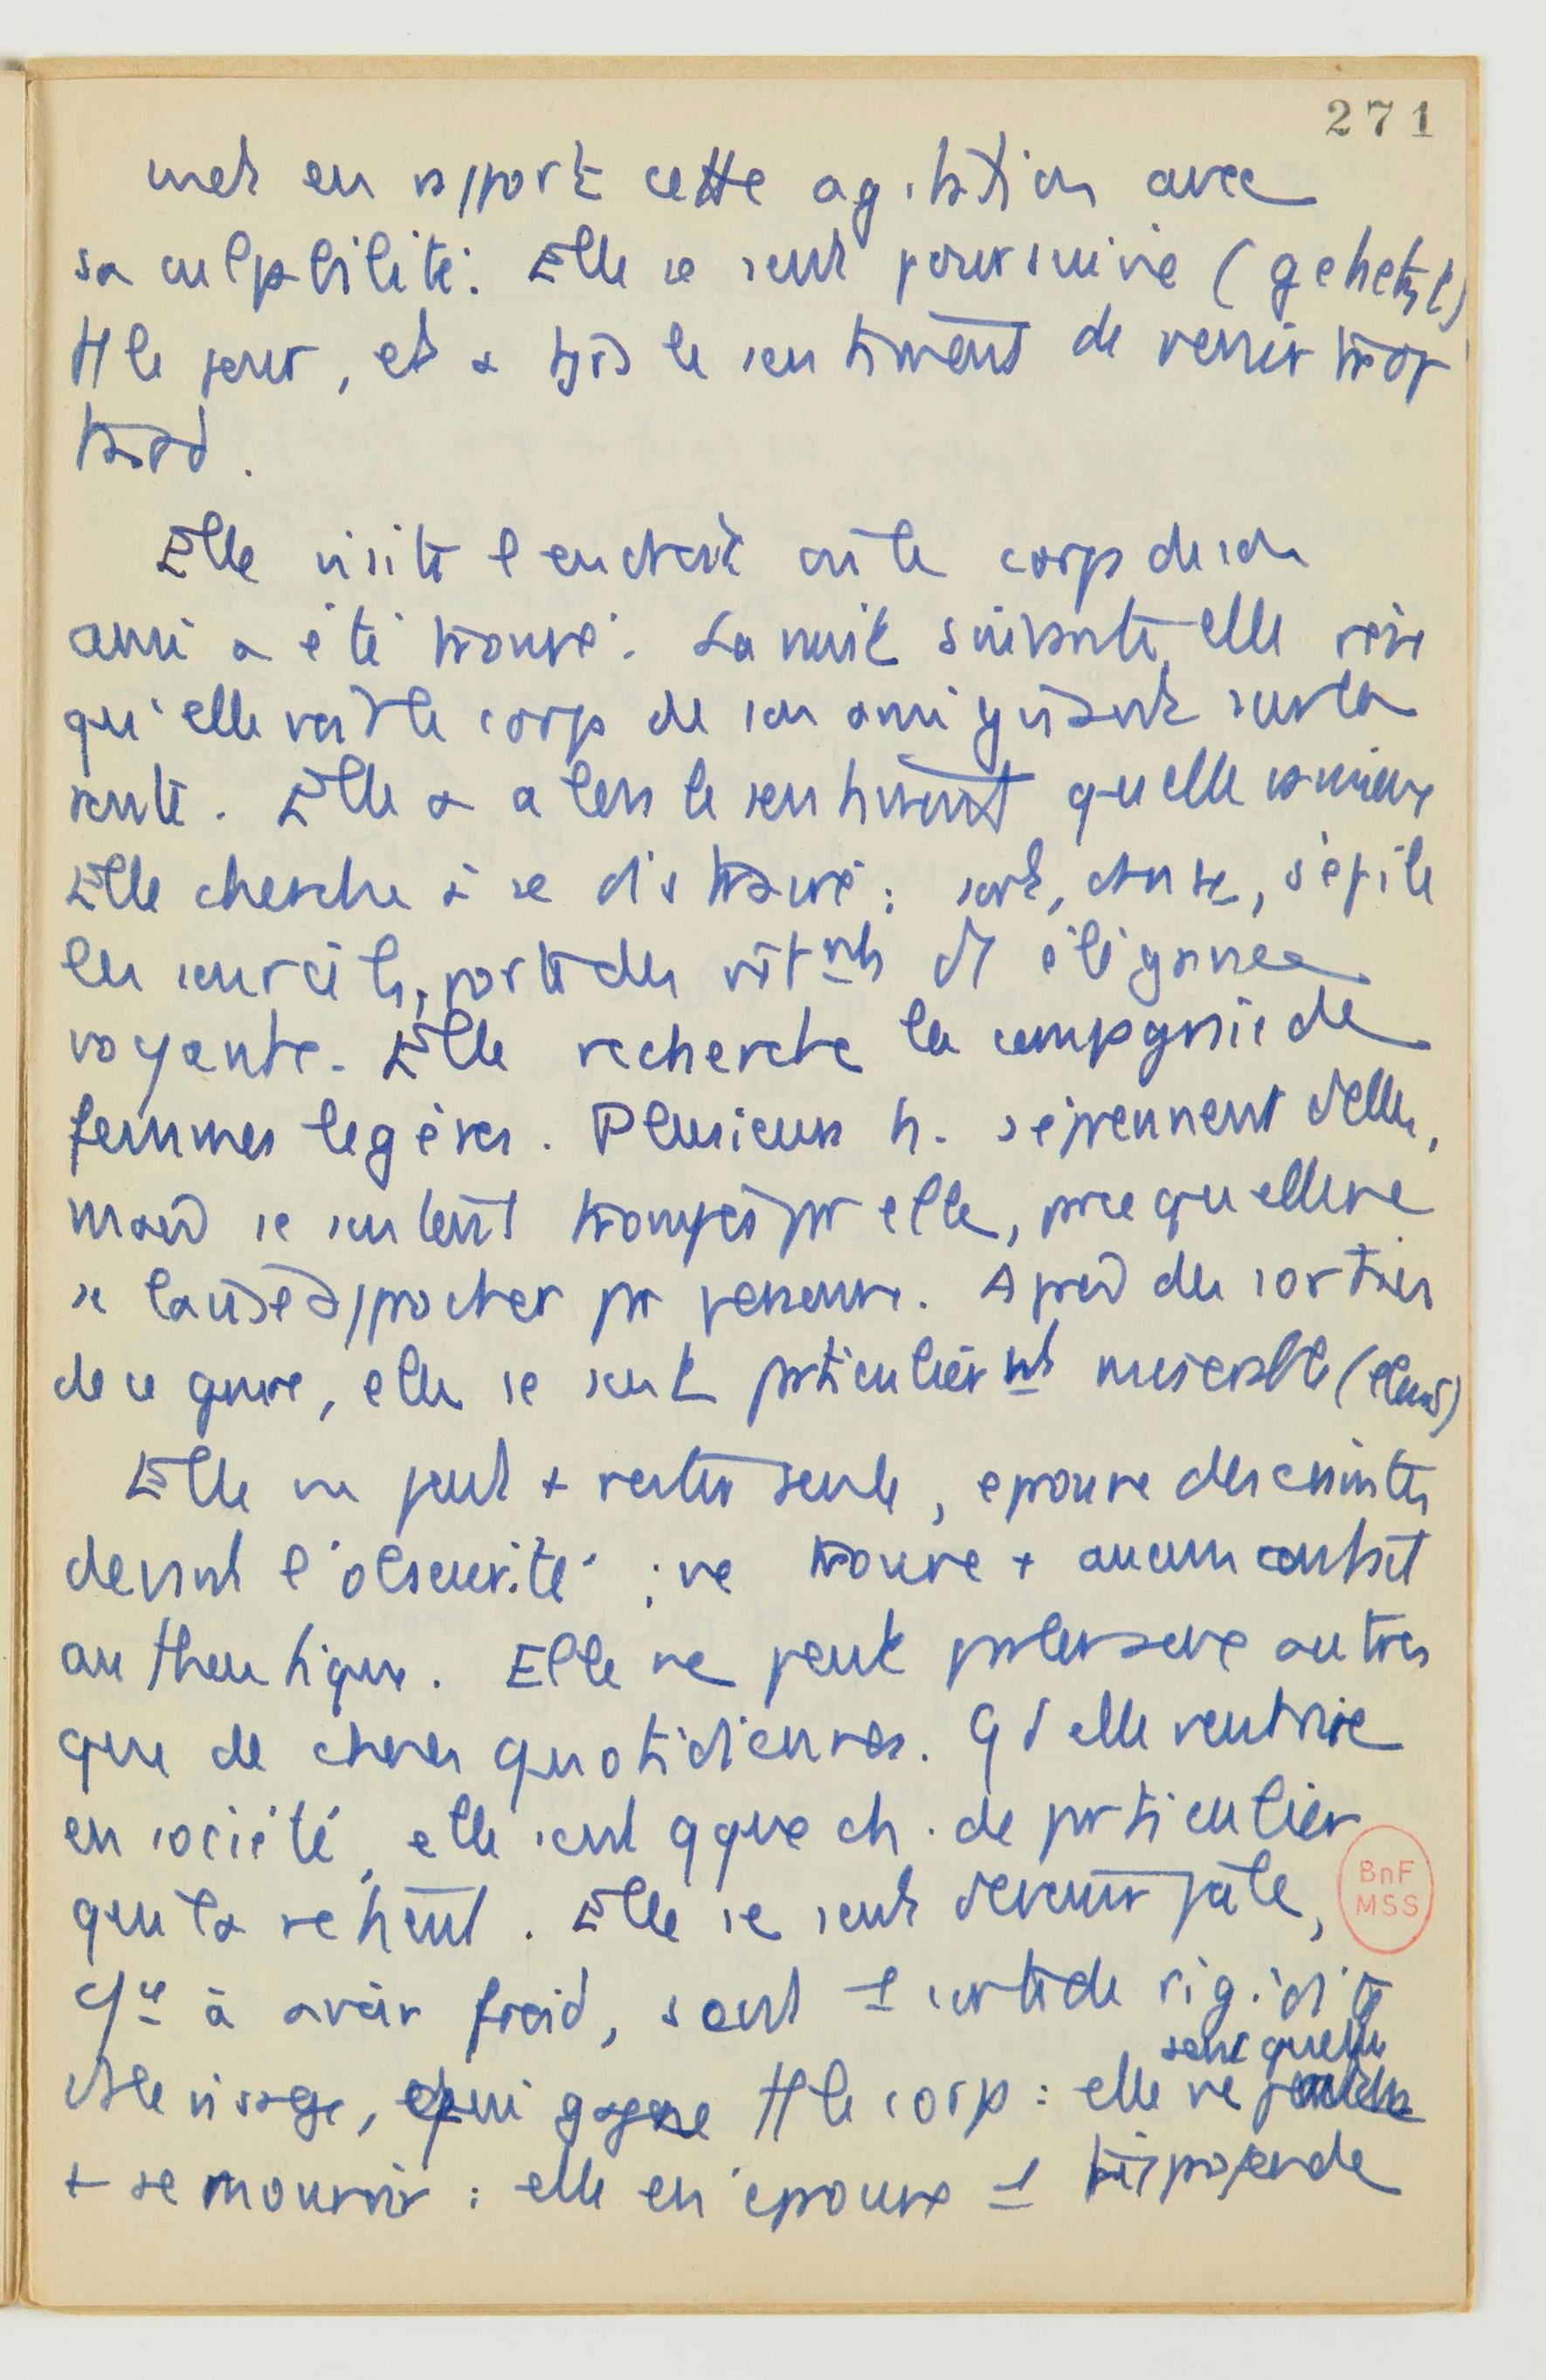 271
met en rapport cette agitation avec
sa culpabilité. Elle se sent poursuivie (gehetzt)
tt le jour, et a tjrs le sentiment de venir trop
tard.
Elle visite l'endroit où le corps de son
ami a été trouvé. La nuit suivante, elle rêve
qu'elle voit le corps de son ami gisant sur la
route. Elle a alors le sentiment qu'elle
Elle cherche à se distraire : sort, danse, s'épile
les sourcils, porte des vêtmts d'élégance
voyante. Elle recherche la compagnie de
femmes légères. Plusieurs h. s'éprennent d'elle,
mais se sentent trompés par elle, parce qu'elle ne
se laisse approcher par personne. Après des sorties
de ce genre, elle se sent particulièrmt misérable (elend)
Elle ne peut + rester seule, éprouve des craintes
devant l'obscurité ; ne trouve + aucun contact
authentique. Elle ne peut parler aux autres
que de choses quotidiennes. Qd elle veut rire
en société, elle sent qque ch. de particulier
qui la retient. Elle se sent devenir pâle,
à avoir froid, sent 1 sorte de rigidité
ds le visage, qui gagne tt le corps : elle ne
sent qu'elle
+ se mouvoir : elle en éprouve 1
BnF
MSS